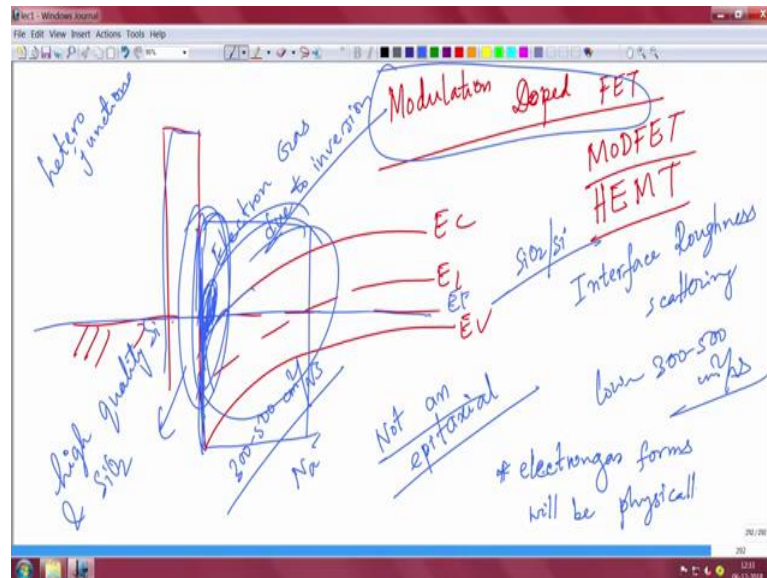 lec1 - Windows Journal
File Edit View Insert Actions Tools Help
hetero
junctions
Modulation Doped FET
MODFET
HEMT
Electron Gas
due to inversion
EC
Ei
EF
EV
SiO2/Si
Interface Roughness
scattering
lower 300-500
cm²/Vs
high quality Si
& SiO2
300-500 cm²/Vs
Na
Not an
epitaxial
* electron gas forms
will be physicall
292/292
292
12:33
06-12-2018